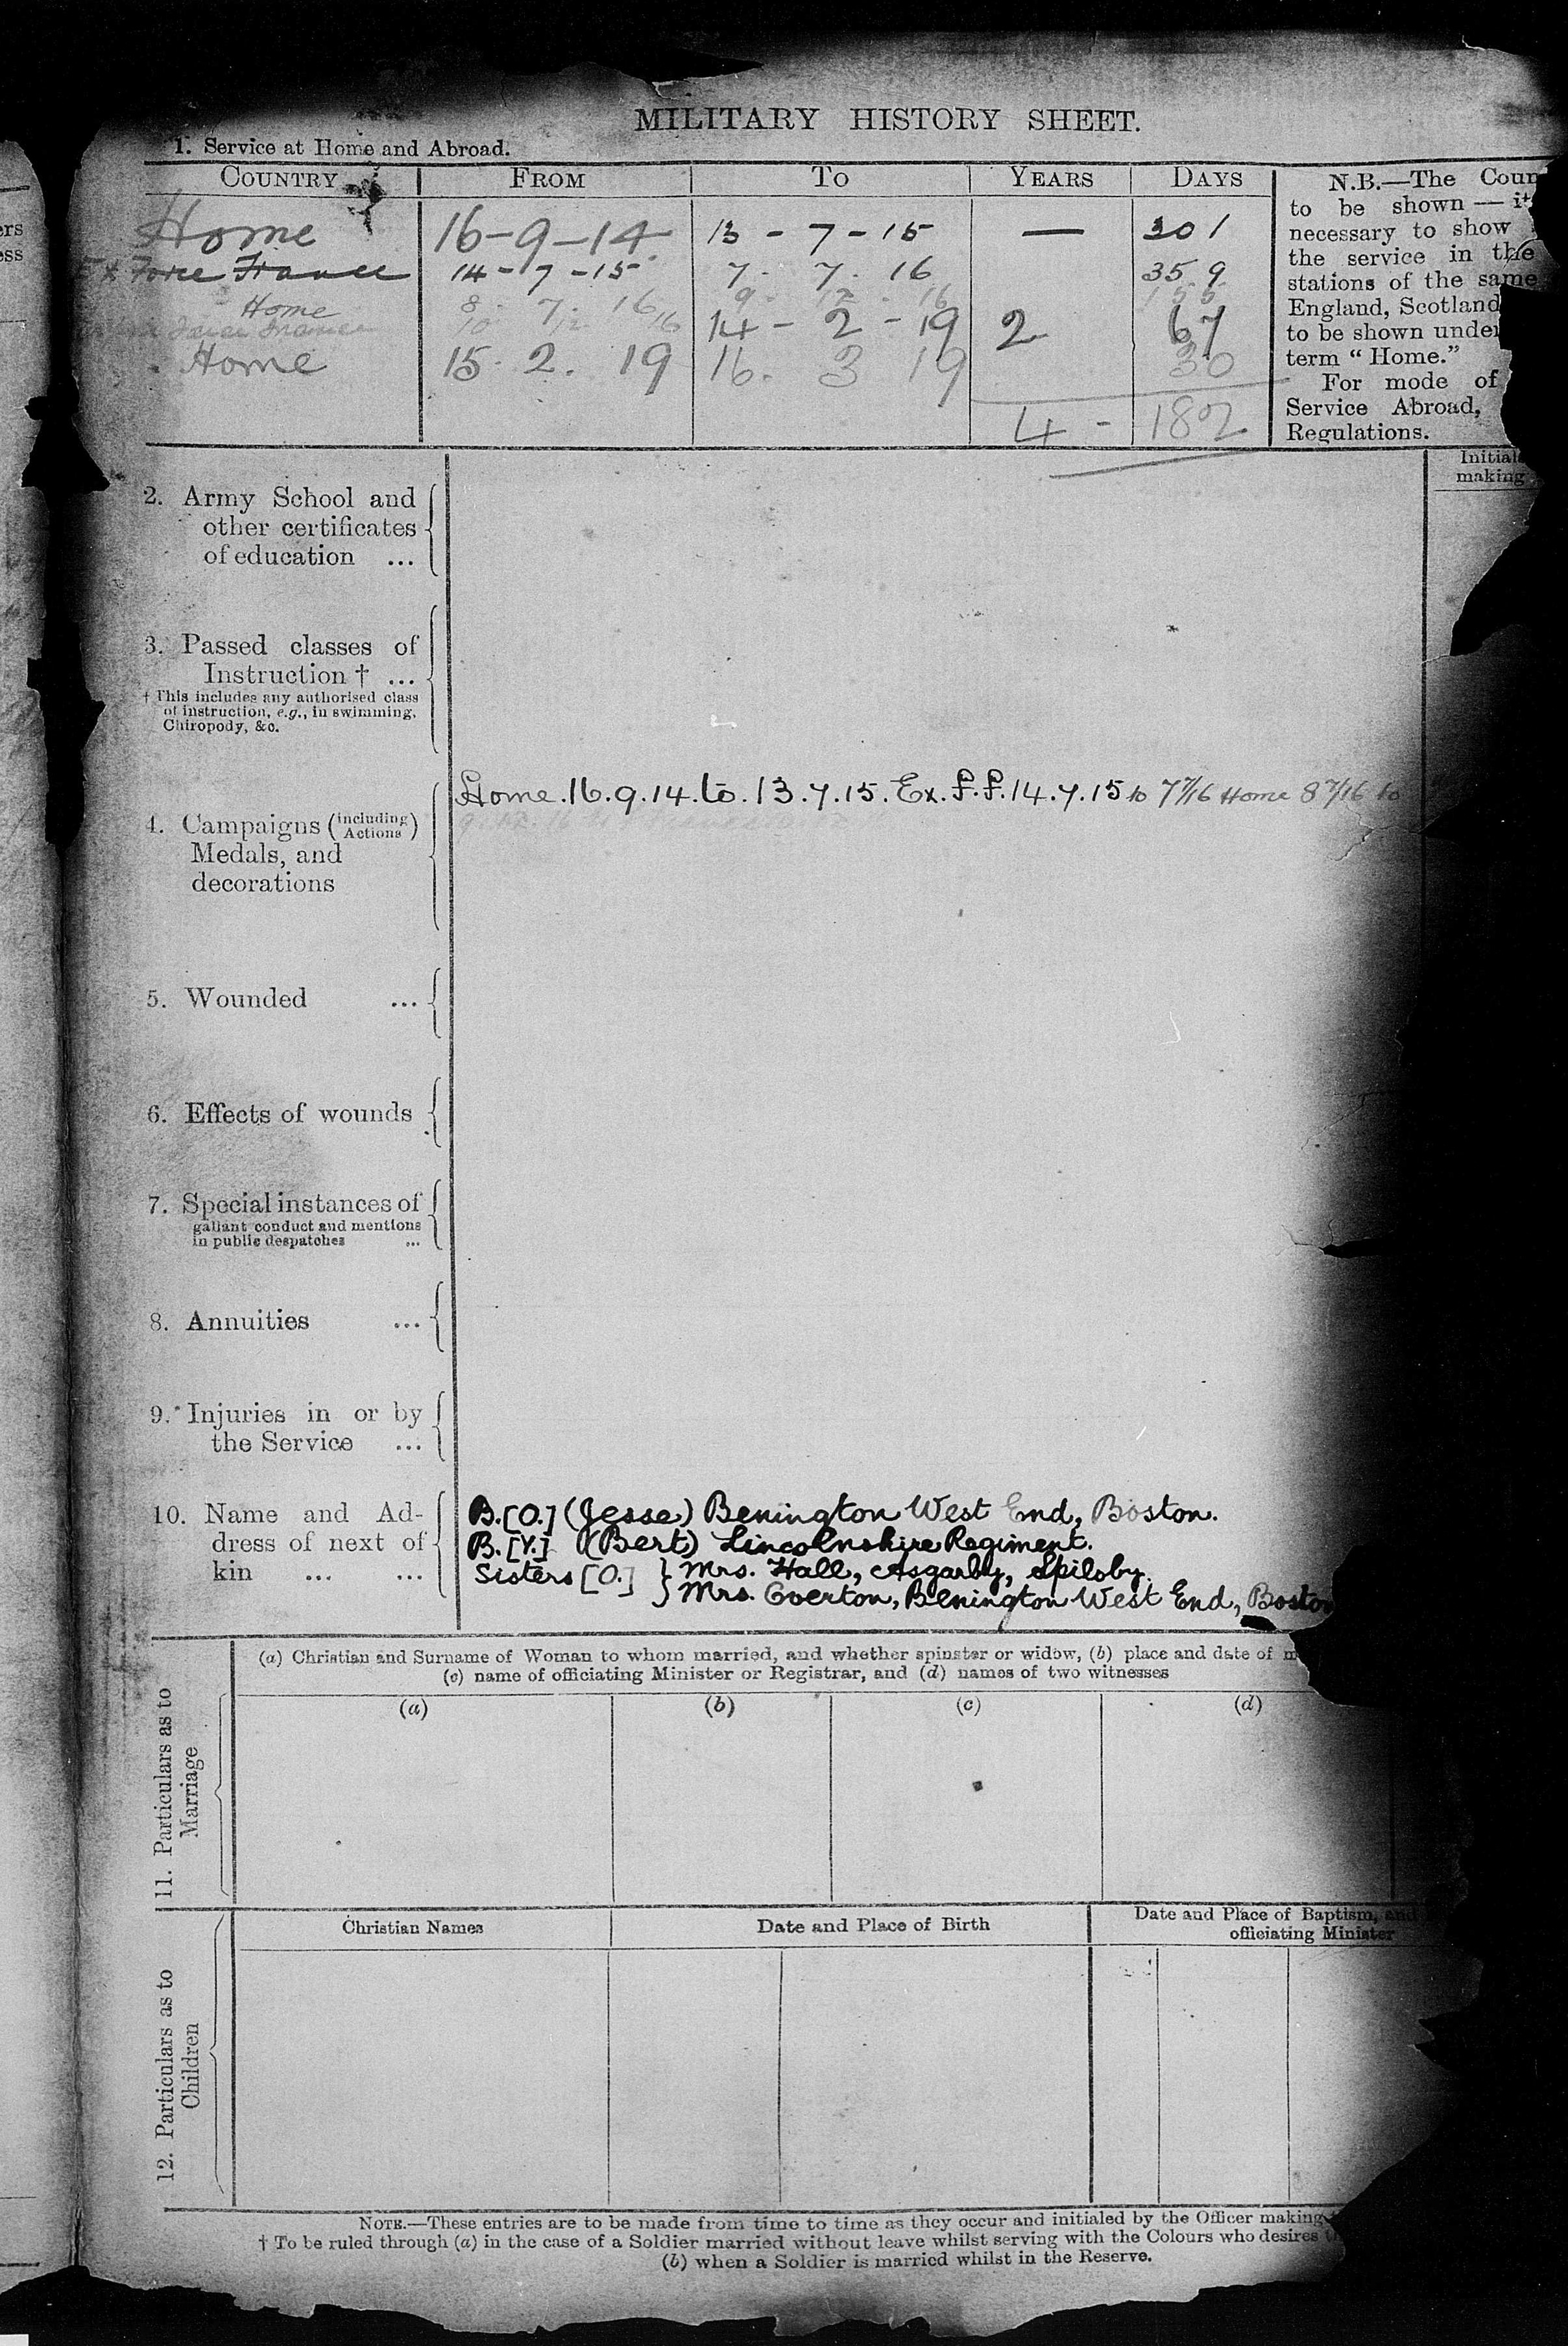 ers
ess
MILITARY HISTORY SHEET.
1. Service at Home and Abroad.
COUNTRY FROM TO YEARS DAYS
Home 16-9-14 13-7-15 — 301
Ex Force France 14-7-15 7-7-16 359
Home 8-7-16 9-12-16 155
Force France 10 12 16 14-2-19 2 67
Home 15.2.19 16.3 19 30
4 - 182
N.B.—The Coun
to be shown — it
necessary to show
the service in the
stations of the same
England, Scotland
to be shown under
term “Home.”
For mode of
Service Abroad,
Regulations.
Initials
making
2. Army School and
other certificates
of education ...
3. Passed classes of
Instruction † ...
† This includes any authorised class
of instruction, e.g., in swimming,
Chiropody, &c.
Home.16.9.14.to.13.7.15.Ex.F.F.14.7.15 to 7 7/16 Home 8 7/16 to
9.12.16
4. Campaigns (including Actions)
Medals, and
decorations
5. Wounded ...
6. Effects of wounds
7. Special instances of
gallant conduct and mentions
in public despatches ...
8. Annuities ...
9. Injuries in or by
the Service ...
10. Name and Ad-
dress of next of
kin ... ...
B.[O.] (Jesse) Benington West End, Boston.
B.[Y.] (Bert) Lincolnshire Regiment.
Sisters [O.] } Mrs. Hall, Asgarby, Spilsby.
} Mrs. Overton, Benington West End, Boston
11. Particulars as to
Marriage
(a) Christian and Surname of Woman to whom married, and whether spinster or widow, (b) place and date of m
(c) name of officiating Minister or Registrar, and (d) names of two witnesses
(a) (b) (c) (d)
12. Particulars as to
Children
Christian Names Date and Place of Birth Date and Place of Baptism, and
officiating Minister
NOTE.—These entries are to be made from time to time as they occur and initialed by the Officer making
† To be ruled through (a) in the case of a Soldier married without leave whilst serving with the Colours who desires
(b) when a Soldier is married whilst in the Reserve.